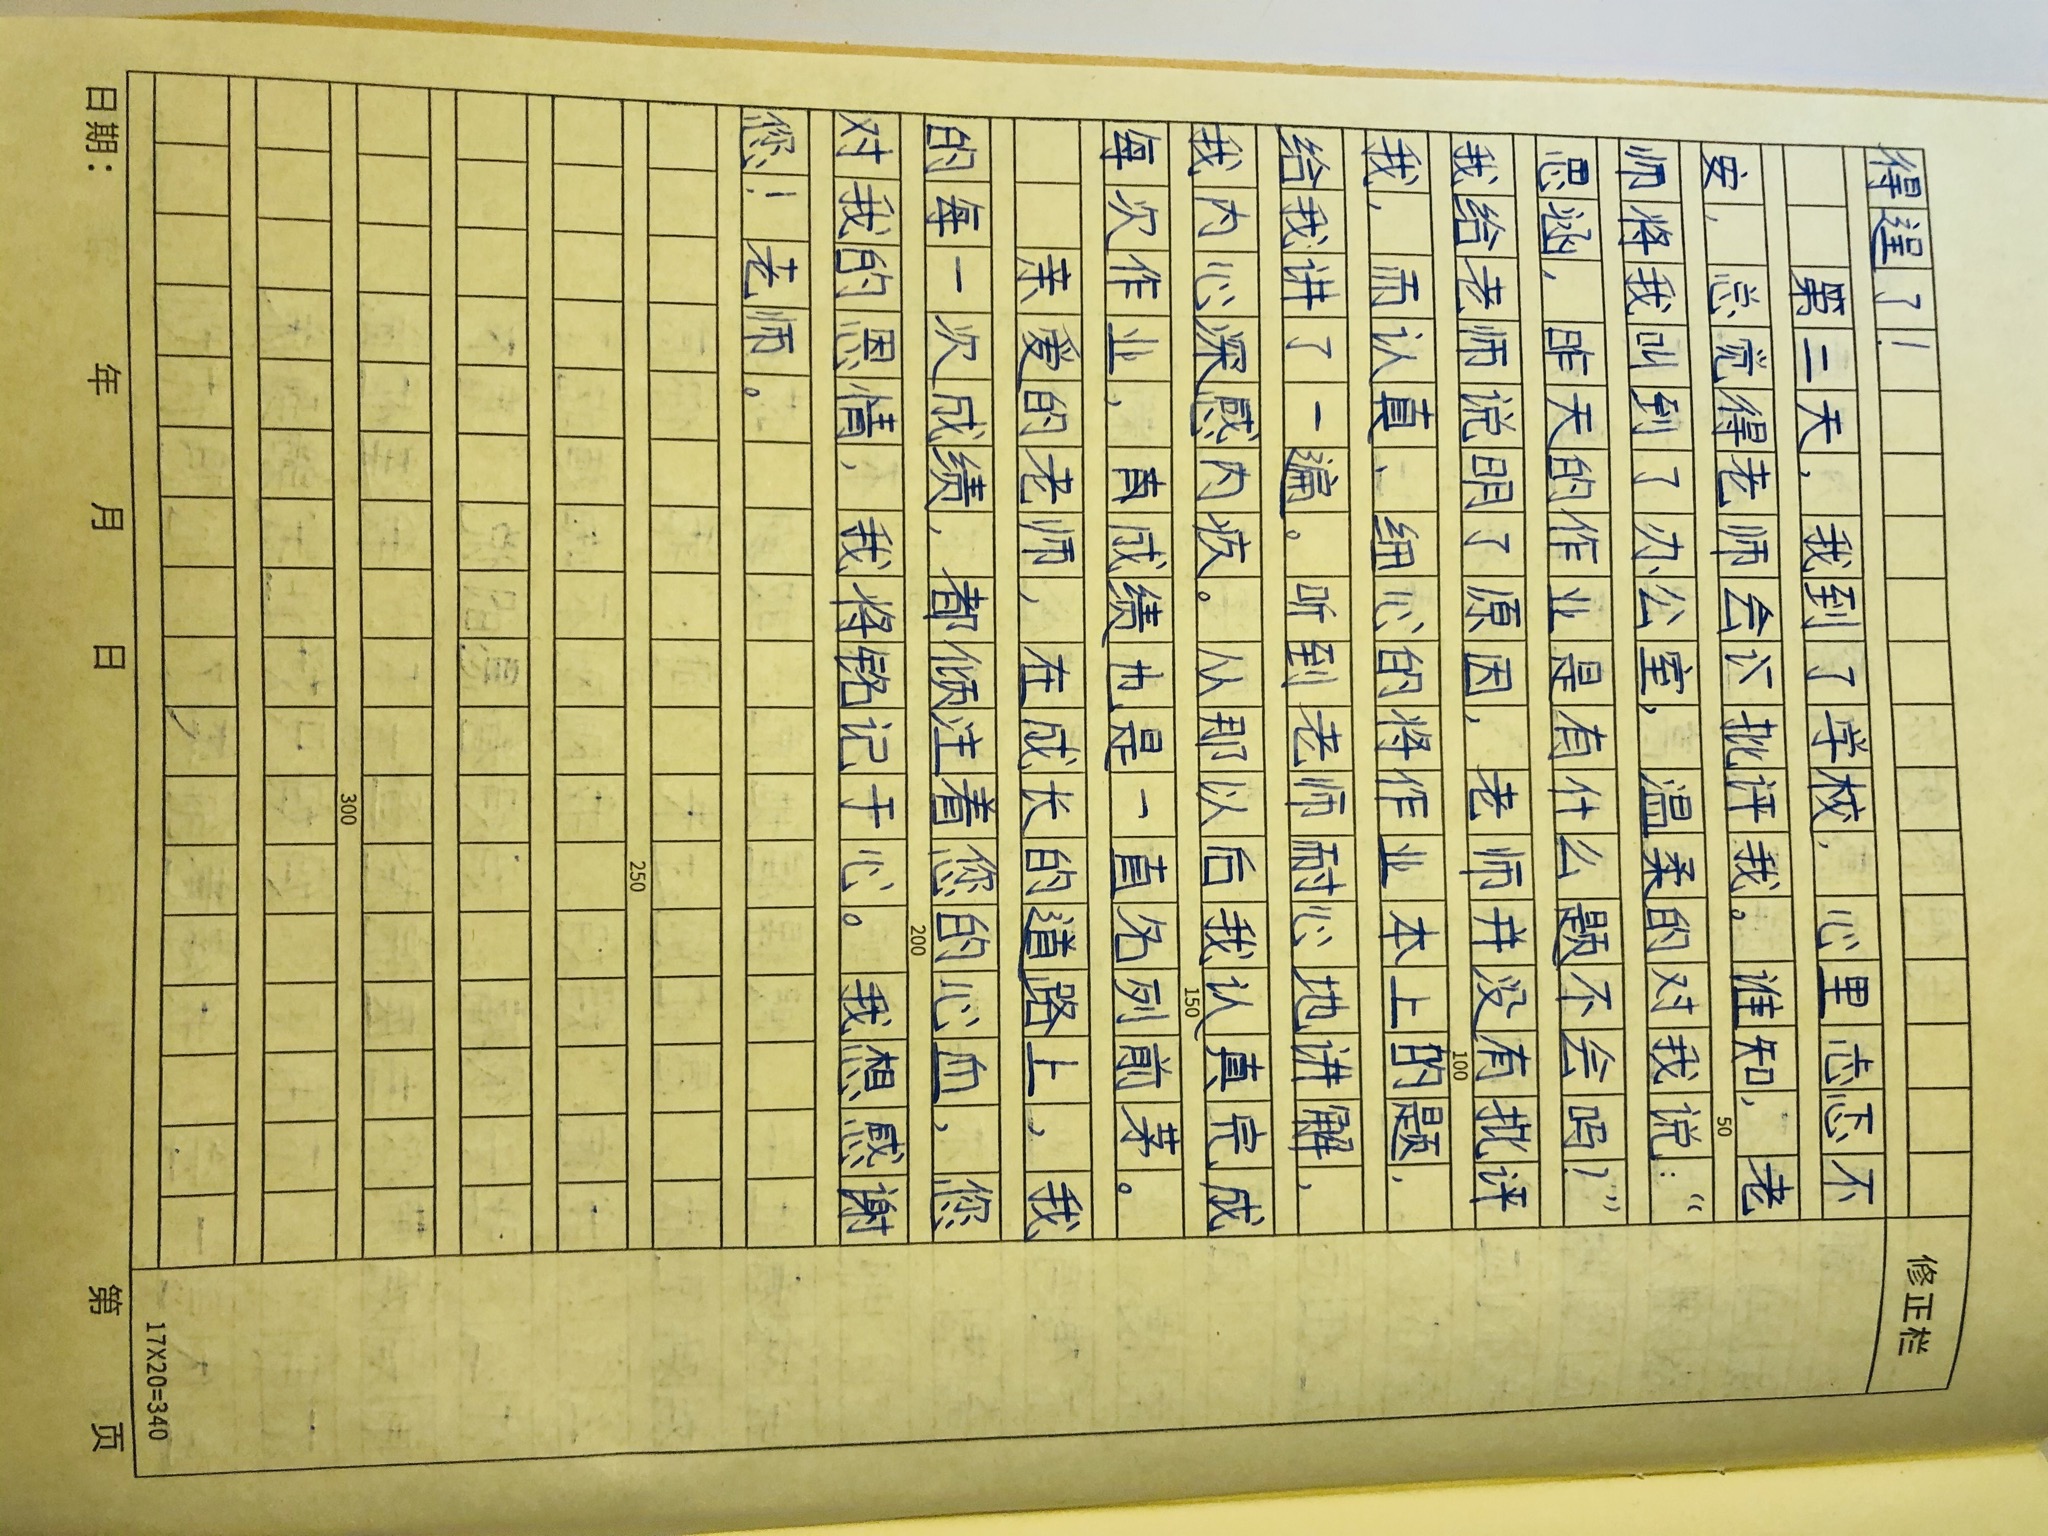 得逞了！
第二天，我到了学校，心里忐忑不
安，总觉得老师会批评我。谁知，老
师将我叫到了办公室，温柔的对我说：“
思涵，昨天的作业是有什么题不会吗？”
我给老师说明了原因，老师并没有批评
我，而认真、细心的将作业本上的题，
给我讲了一遍。听到老师耐心地讲解，
我内心深感内疚。从那以后我认真完成
每次作业，成绩也是一直名列前茅。
亲爱的老师，在成长的道路上，我
的每一次成绩，都倾注着您的心血，您
对我的恩情，我将铭记于心。我想感谢
您！老师。
修正栏
50
100
150
200
250
300
17X20=340
日期： 年 月 日 第 页